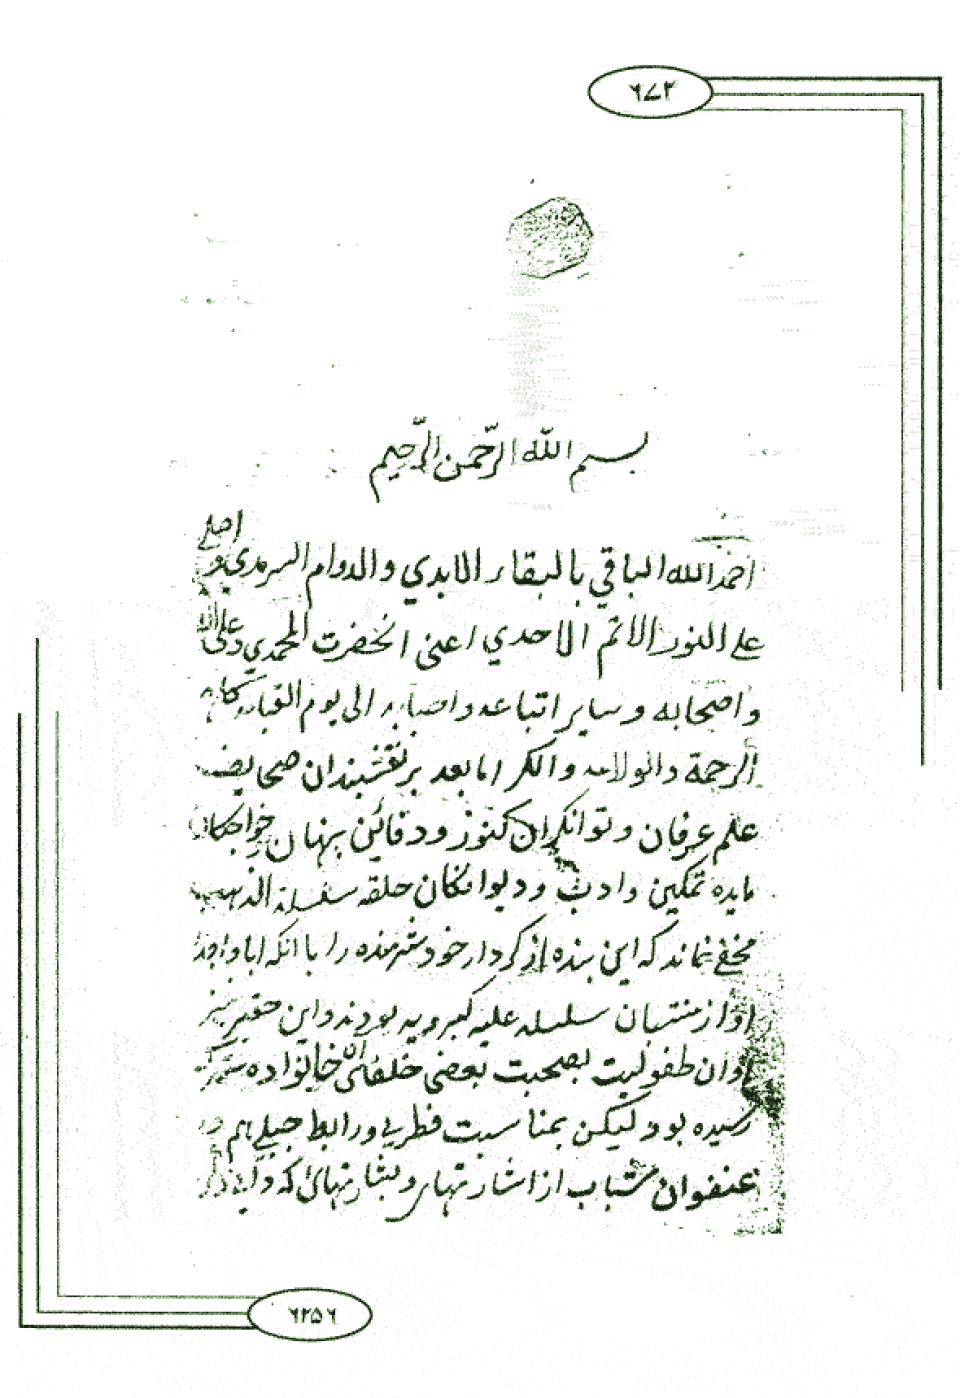 ٦٧٢
بسم الله الرّحمن الرّحيم
احمد الله الباقي بالبقاء الابدي والدوام السرمدي و اصلي
علي النور الاتم الاحدي اعنی الحضرت المحمدي وعلی اله
واصحابه و ساير اتباعه واحبابه الی يوم القيامه
الرحمة والولايه والكر اما بعد بر نقشبندان صحايف
علم عرفان و توانكران كنوز و دفائين پنهان خواجكان
مايده تمكين وادب و ديوانكان حلقه سلسلة الذهب
مخفي نماند كه اين بنده از كردار خود شرمنده را با انكه ابا و اجداد
او از منتسبان سلسله عليه كبرويه بودند واين حقير نيز
اوان طفوليت بصحبت بعضی خلفای ان خانواده
رسيده بود ليكن بمناسبت فطريي و رابط جبلي هم در
عنفوان شباب از اشارتهای و بشارتهای كه
٦٢٥٦